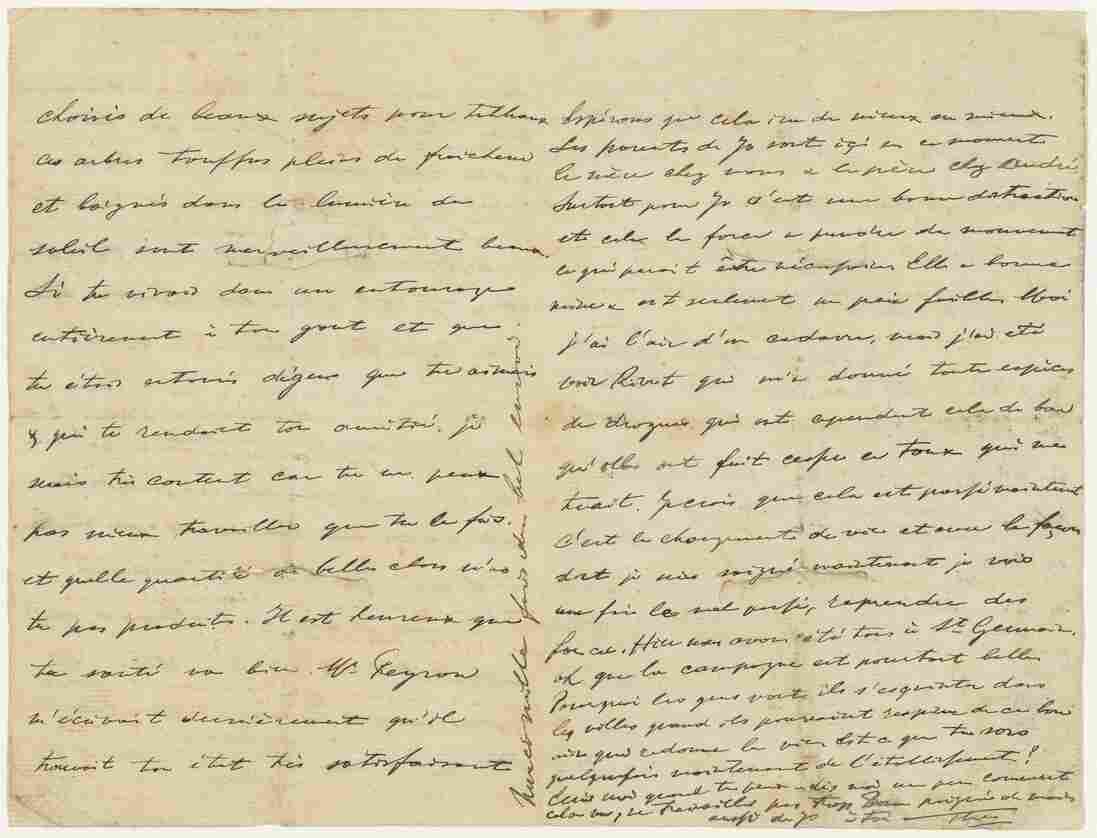 choisis de beaux sujets pour tableaux
ces arbres touffus pleins de fraicheur
et baignés dans la lumière du
soleil sont merveilleusement beaux.
Si tu vivais dans un entourage
entièrement à ton gout et que
tu étais entouré de gens que tu aimais
& qui te rendaient ton amitié, je
serais très content car tu ne peux
pas mieux travailler que tu le fais.
et quelle quantité de belles choses n'as
tu pas produits. Il est heureux que
ta santé va bien. Mr Peyron
m'écrivait dernièrement qu'il
trouvait ton état très satisfaisant
Espérons que cela ira de mieux en mieux.
Les parents de Jo sont içi en ce moment
la mère chez nous & le père chez André.
Surtout pour Jo c'est une bonne distraction
et cela la force a prendre du mouvement
ce qui parait être nécessaire. Elle a bonne
mine & est seulement un peu faible. Moi
j'ai l'air d'un cadavre, mais j'ai été
voir Rivet qui m'a donné toutes espèces
de drogues qui ont cependant cela de bon
qu'elles ont fait cesser ce toux qui me
tuait. Je crois que cela est passé maintenant
C'est le changement de vie et avec la façon
dont je suis soigné maintenant je vais
une fois le mal passé, reprendre des
forces. Hier nous avons été tous à St Germain.
oh que la campagne est pourtant belle
Pourquoi les gens vont ils s'esquinter dans
les villes quand ils pourraient respirer de ce bon
air qui redonne la vie. Est ce que tu sors
quelquefois maintenant de l'établissement?
Ecris moi quand tu peux & dis moi un peu comment
cela va, ne travailles pas trop. Bonne poignée de main
aussi de Jo à toi Theo
Merci mille fois du bel envoi